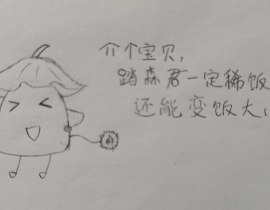 介个宝贝，
踏森君一定稀饭
还能变饭大